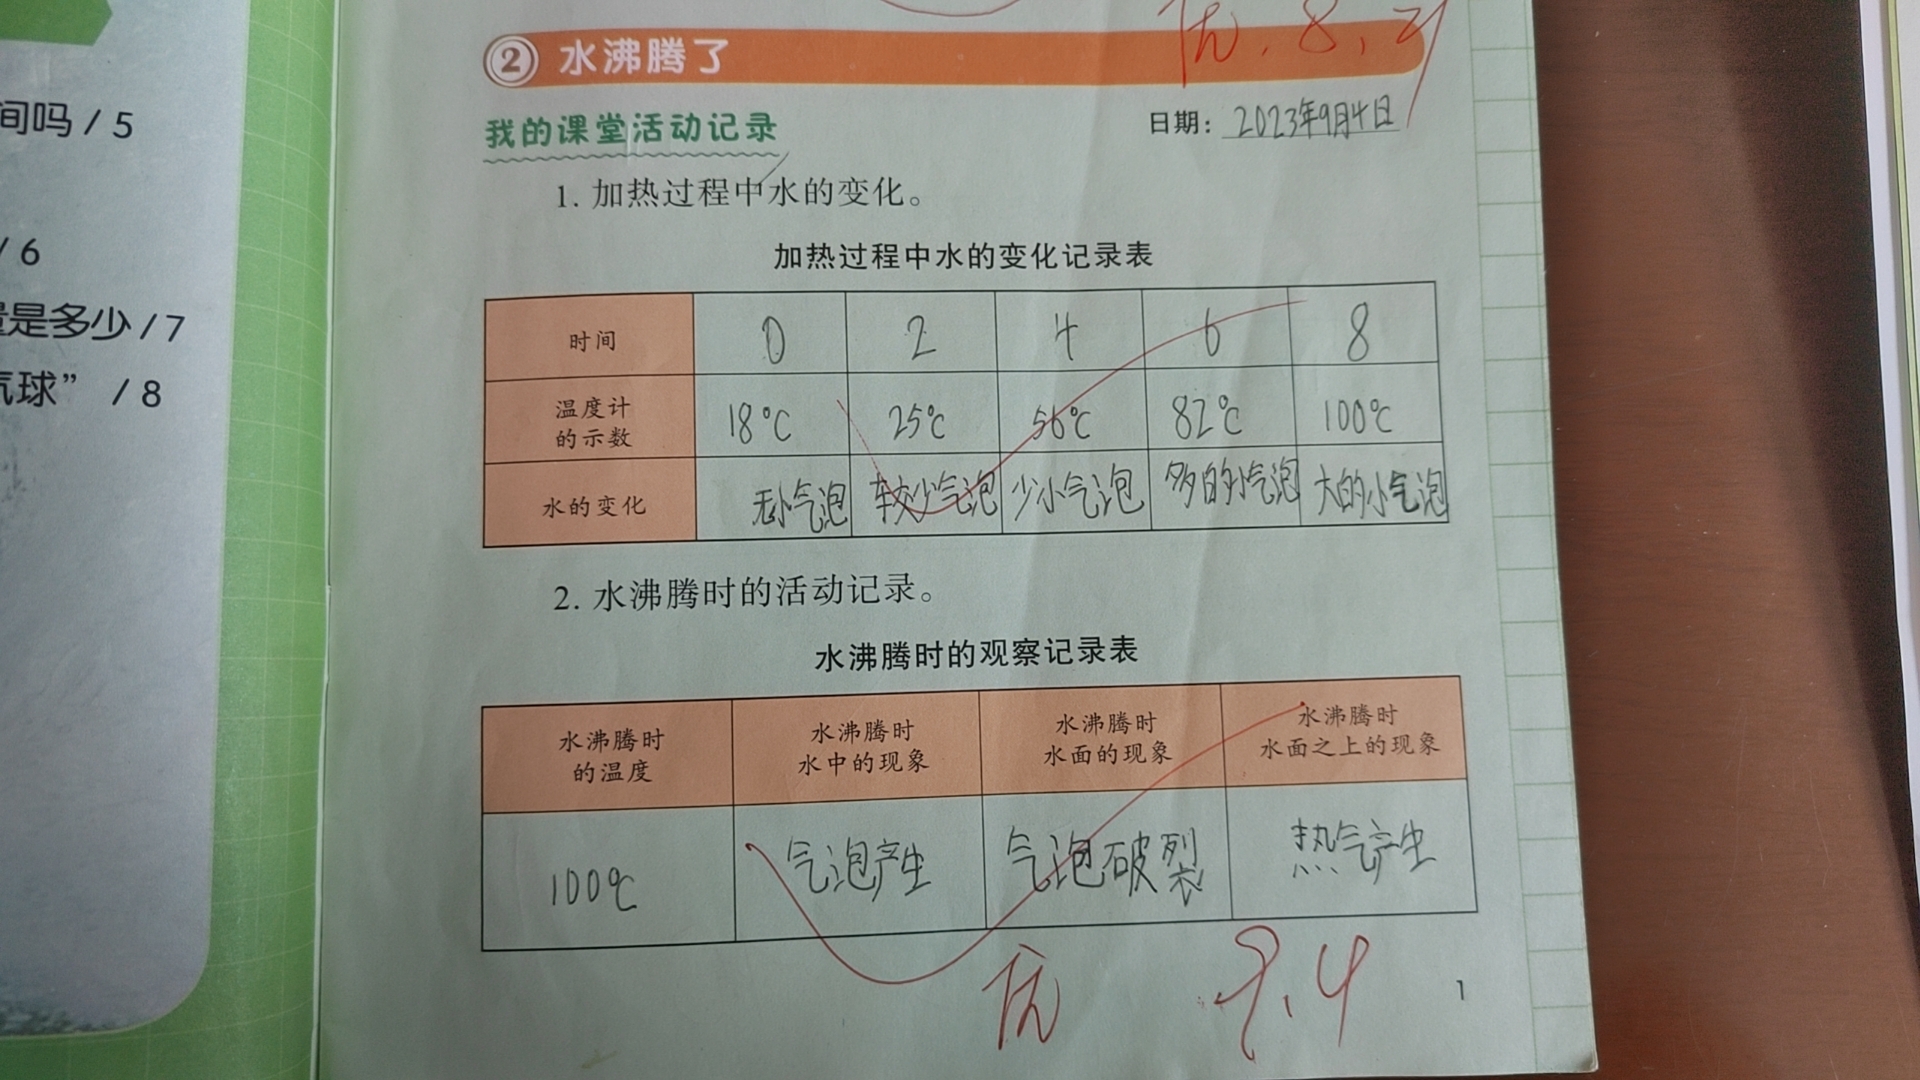 间吗 / 5
/ 6
是多少 / 7
气球” / 8
优. 8. 21
② 水沸腾了
我的课堂活动记录
日期: 2023年9月4日
1. 加热过程中水的变化。
加热过程中水的变化记录表
时间 0 2 4 6 8
温度计的示数 18℃ 25℃ 56℃ 82℃ 100℃
水的变化 无小气泡 较少气泡 少小气泡 多的小气泡 大的小气泡
2. 水沸腾时的活动记录。
水沸腾时的观察记录表
水沸腾时 水沸腾时 水沸腾时 水沸腾时
的温度 水中的现象 水面的现象 水面之上的现象
100℃ 气泡产生 气泡破裂 热气产生
优 9.4
1